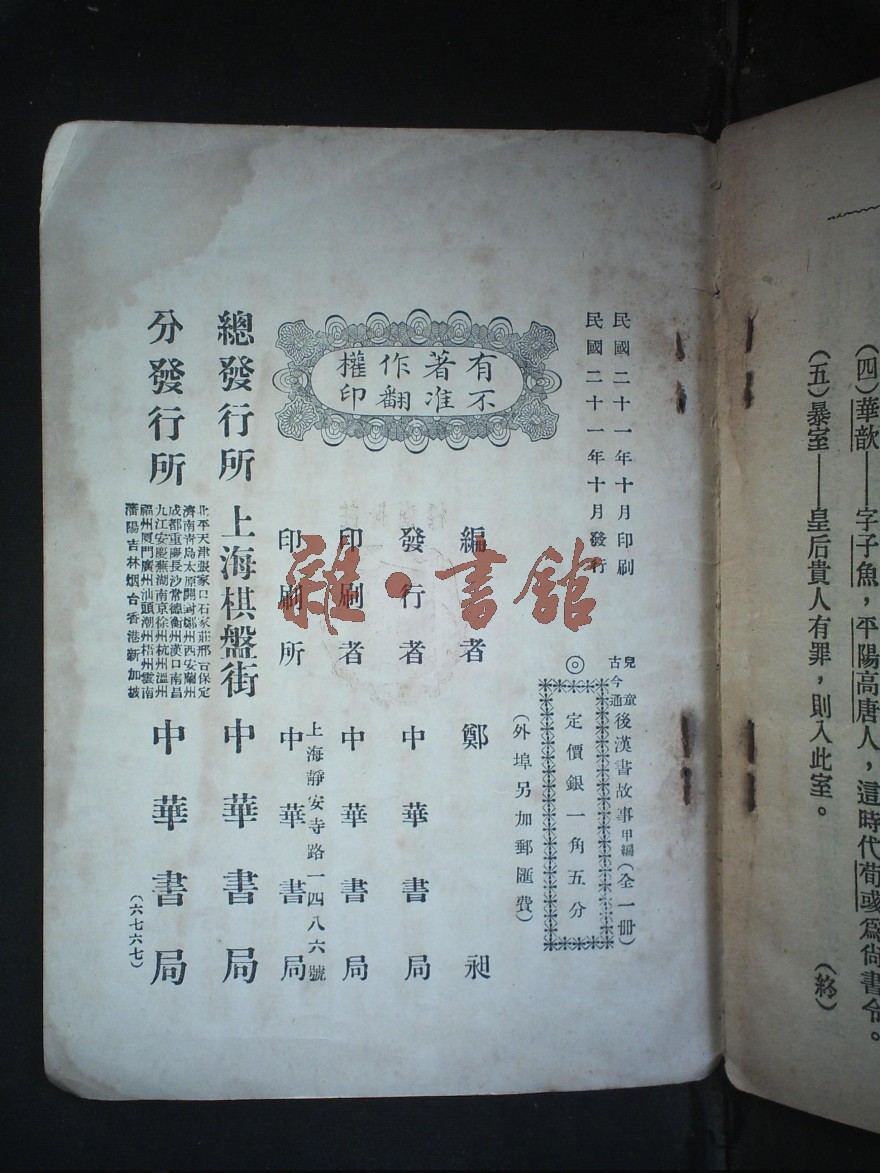 （四）華歆——字子魚，平陽高唐人，這時代荀彧爲尚書令。
（五）暴室——皇后貴人有罪，則入此室。
（終）
民國二十一年十月印刷
民國二十一年十月發行
有著作權
不准翻印
兒童古今通
後漢書故事甲編（全一冊）
◎
定價銀一角五分
（外埠另加郵匯費）
編者 鄭昶
發行者 中華書局
印刷者 中華書局
上海靜安寺路一四八六號
印刷所 中華書局
總發行所 上海棋盤街 中華書局
分發行所
北平天津張家口石家莊邢台保定
濟南青島太原開封鄭州西安蘭州
成都重慶長沙常德衡州漢口南昌
九江安慶蕪湖南京徐州杭州溫州
福州厦門廣州汕頭潮州梧州雲南
瀋陽吉林烟台香港新加坡
中華書局
（六七六七）
雜·書館